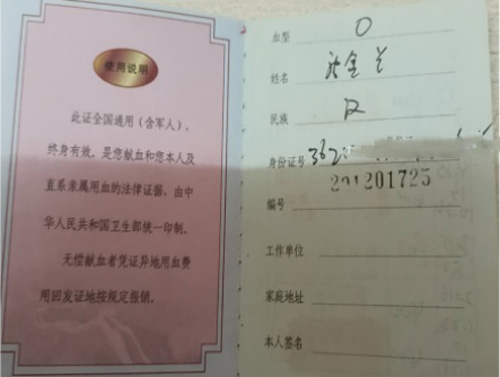 使用说明
此证全国通用（含军人），
终身有效，是您献血和您本人及
直系亲属用血的法律证据，由中
华人民共和国卫生部统一印制。
无偿献血者凭证异地用血费
用回发证地按规定报销。
血型 O
姓名
民族 汉
身份证号 362
201201725
编号
工作单位
家庭地址
本人签名